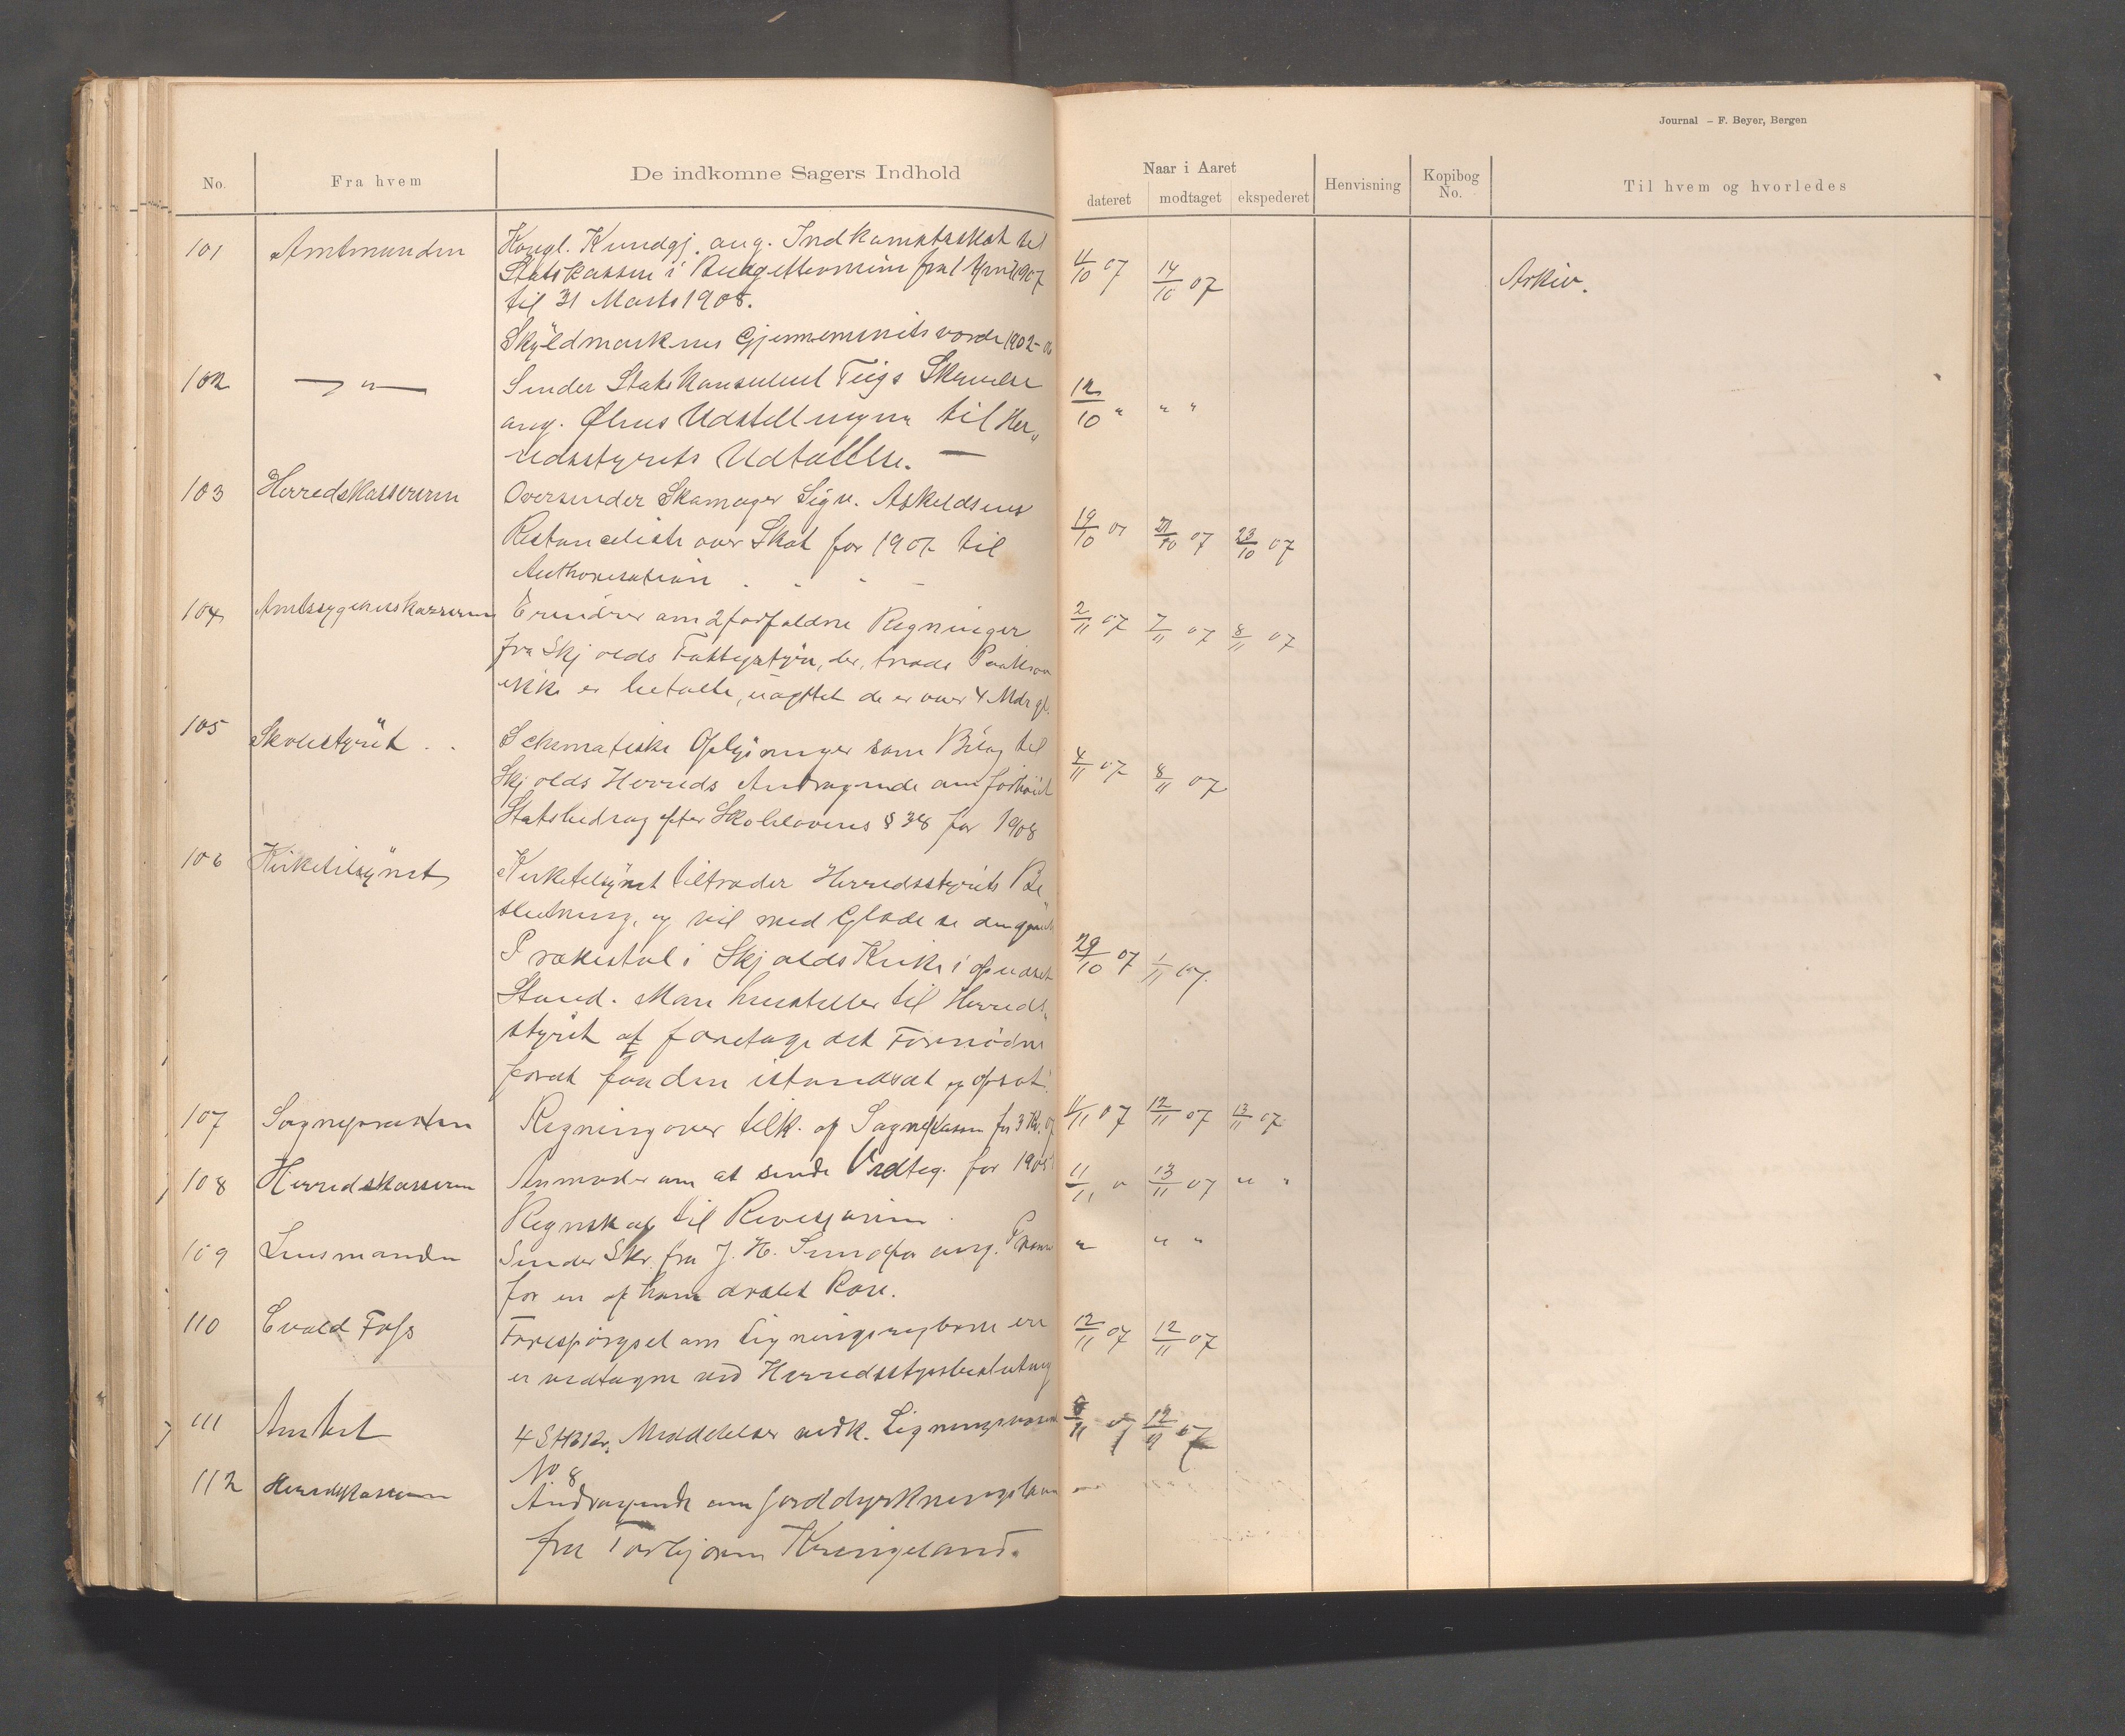 Journal – F. Beyer, Bergen
No. Fra hvem De indkomne Sagers Indhold Naar i Aaret Henvisning Kopibog No. Til hvem og hvorledes
dateret modtaget ekspederet
101 Amtmanden Kongl. Kundgj. ang. Indkomstskat til 4/10 07 14/10 07 Arkiv.
Statskassen i Budgetterminen fra 1 April 1907
til 31 Marts 1908.
Skyldmarkens Gjennemsnitsværdi 1902-06
102 — " — Sender Statskonsulent Teigs Skrivelse 12/10 " " "
ang. Ølens Udstillingen til Her„
redsstyrets Udtallelse. —
103 Herredskassereren Oversender Skomager Sigv. Askeldsens 19/10 07 21/10 07 23/10 07
Restanceliste over Skat for 1907 til
Authorisation
104 Amtssygehuskassereren Erindrer om 2 forfaldne Regninger 2/11 07 7/11 07 8/11 07
fra Skjolds Fattigstyre, der, trods Paakrav
ikke er betalte, uagtet de er over 4 Mdr gl.
105 Skolestyret Schematiske Oplysninger som Bilag til 4/11 07 8/11 07
Skjolds Herreds Andragende om forhøiet
Statsbidrag efter Skolelovens § 38 for 1908
106 Kirketilsynet Kirketilsynet tiltræder Herredsstyrets Be
slutning, og vil med Glæde se den gamle
Prækestol i Skjolds Kirke i opudset 29/10 07 1/11 07.
Stand. Man henstiller til Herreds„
styret at foretage det Fornødne
forat faa den istandsat og opsat.
107 Sognepræsten Regning over tilk. af Sognekassen for 3 Kv. 07 11/11 07 12/11 07 13/11 07
108 Herredskassereren Anmoder om at sende Vedteg. for 1905 11/11 " 13/11 07 " "
Regnskab til Revisjonen.
109 Lensmanden Sender Skr. fra J. H. ang. Præmie " " "
for en af ham dræbt Ræv.
110 Evald Foss Forespørgsel om Ligningsreglerne er 12/11 07 12/11 07
er vedtagen ved Herredsstyrebeslutning
111 Amtet 4 Stkr. Meddelelser vedk. Ligningsvæsenet 8/11 07 12/11 07
No 8
112 Herredskassereren Andragende om Jorddyrkningslaan
fra Torbjørn Kringeland.